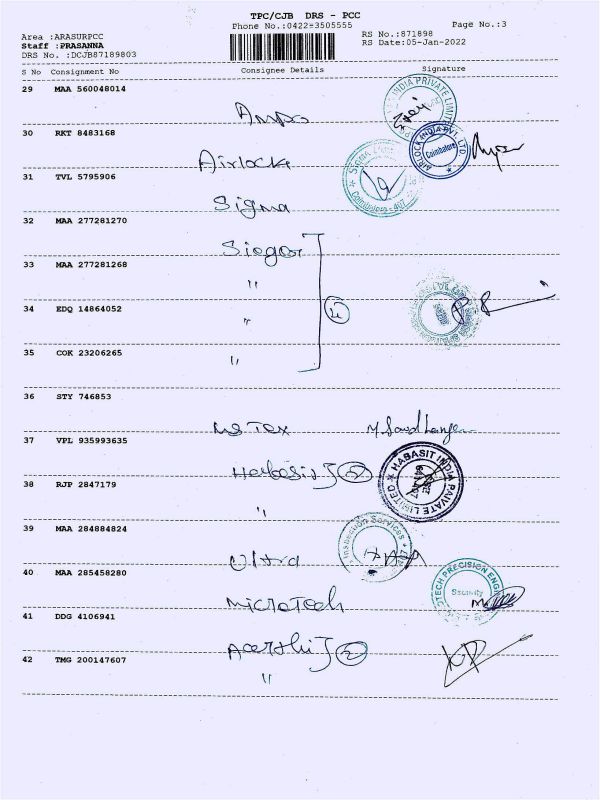 TPC/CJB DRS - PCC
Phone No.:0422-3505555
Page No.:3
Area :ARASURPCC
RS No.:871898
Staff :PRASANNA
RS Date:05-Jan-2022
DRS No. :DCJB87189803
S No Consignment No Consignee Details Signature
29 MAA 560048014
Ampo
INDIA PRIVATE LIMITED
30 RKT 8483168
Airlocke
AIRLOCK INDIA PVT. LTD
Coimbatore
31 TVL 5795906
Sigma
Sigma
Coimbatore - 407
32 MAA 277281270
33 MAA 277281268
"
34 EDQ 14864052
"
35 COK 23206265
"
36 STY 746853
37 VPL 935993635
HABASIT INDIA PRIVATE LIMITED
38 RJP 2847179
"
39 MAA 284884824
Ultra
Inspection Services
40 MAA 285458280
Microtech
TECH PRECISION ENG
Security
41 DDG 4106941
42 TMG 200147607
"